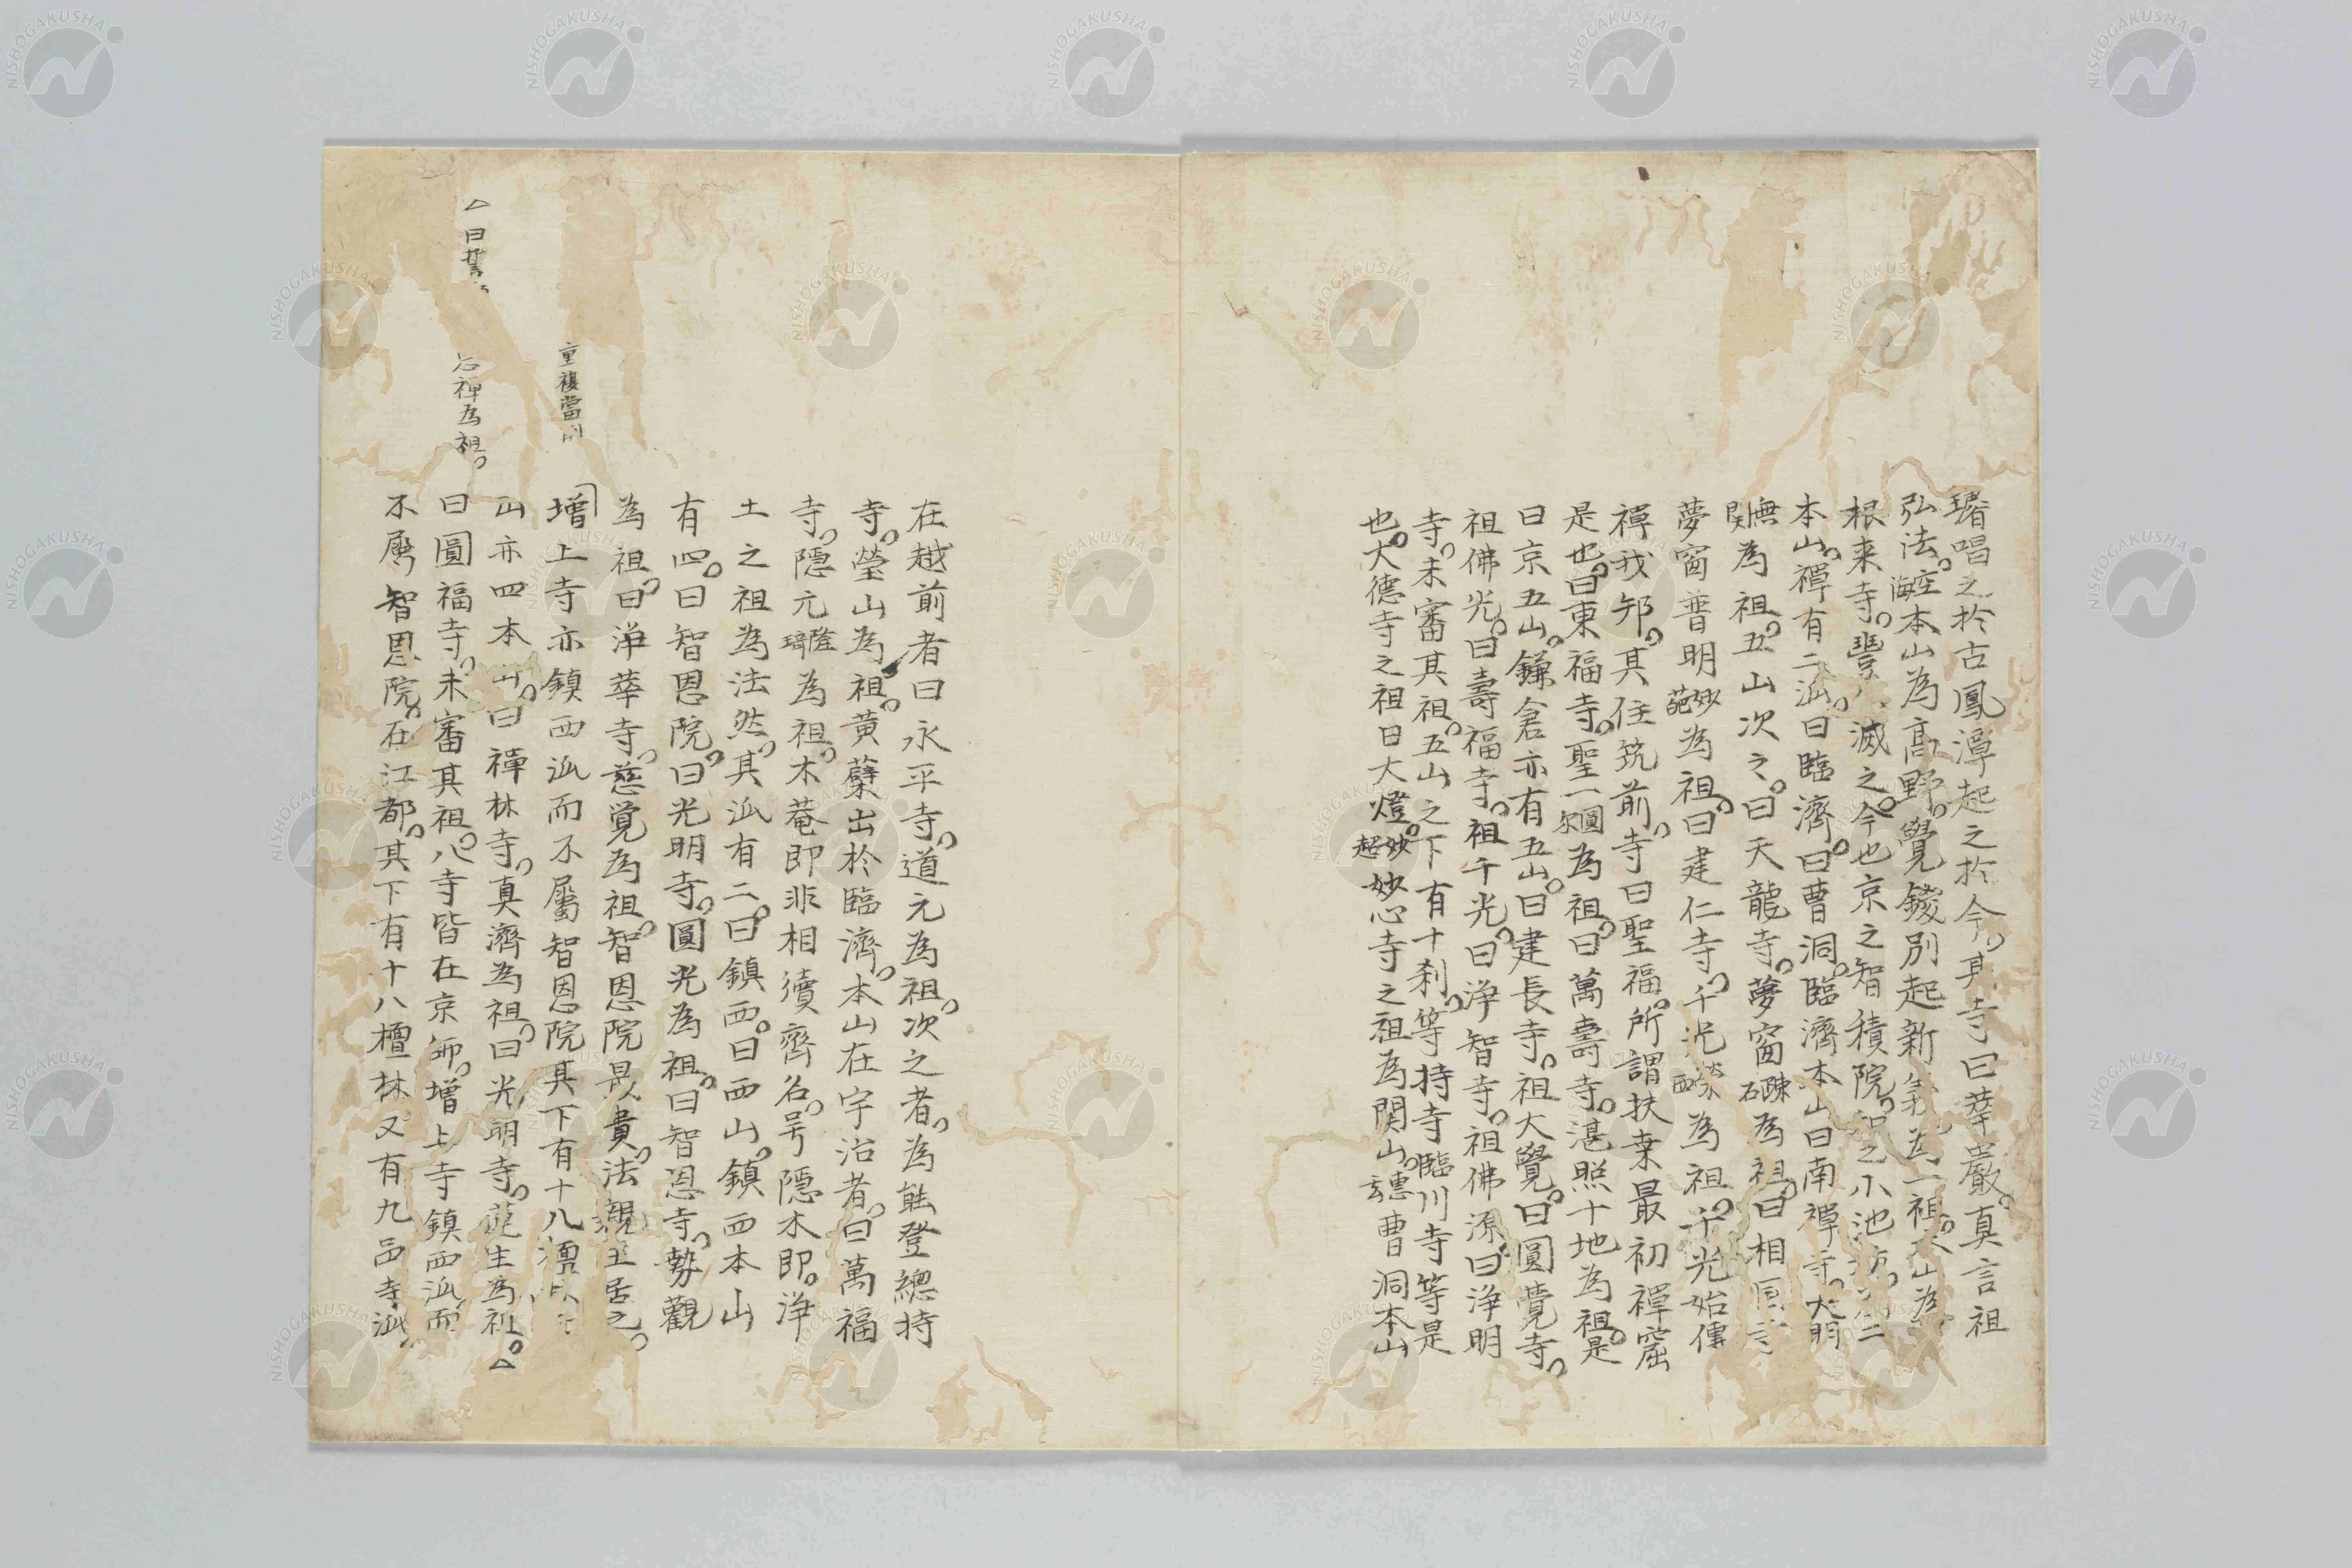 璿唱之於古鳳潭起之於今其寺曰華嚴真言祖
弘法空海本山為高野覺鑁別起新義為一祖本山為
根来寺豐 滅之今也京之智積院 之小池坊 二
本山禪有二泒曰臨濟曰曹洞臨濟本山曰南禪寺大明
無関為祖五山次之曰天龍寺夢窗疎石為祖曰相國寺
夢窗普明妙葩為祖曰建仁寺千光榮西為祖千光始傳
禪我邦其住筑前寺曰聖福所謂扶桒最初禪窟
是也曰東福寺聖一圓尓為祖曰萬壽寺湛照十地為祖是
曰京五山鎌倉亦有五山曰建長寺祖大覺曰圓覺寺
祖佛光曰壽福寺祖千光曰浄智寺祖佛源曰浄明
寺未審其祖五山之下有十刹等持寺臨川寺等是
也大德寺之祖曰大燈妙超妙心寺之祖為関山惠玄曹洞本山
在越前者曰永平寺道元為祖次之者為能登總持
寺瑩山為祖黄蘗出於臨濟本山在宇治者曰萬福
寺隱元隆琦為祖木菴即非相續齊名号隱木即浄
土之祖為法然其泒有二曰鎮西曰西山鎮西本山
有四曰智恩院曰光明寺圓光為祖曰智恩寺勢觀
為祖曰浄華寺慈覚為祖智恩院最貴法親王居之
增上寺亦鎮西泒而不屬智恩院其下有十八檀林
重複當削
山亦四本山曰禪林寺真濟為祖曰光明寺蓮生為祖△
△曰誓
禅為祖
曰圓福寺未審其祖八寺皆在京師增上寺鎮西泒而
不屬智恩院在江都其下有十八檀林又有九品寺泒
NISHOGAKUSHA